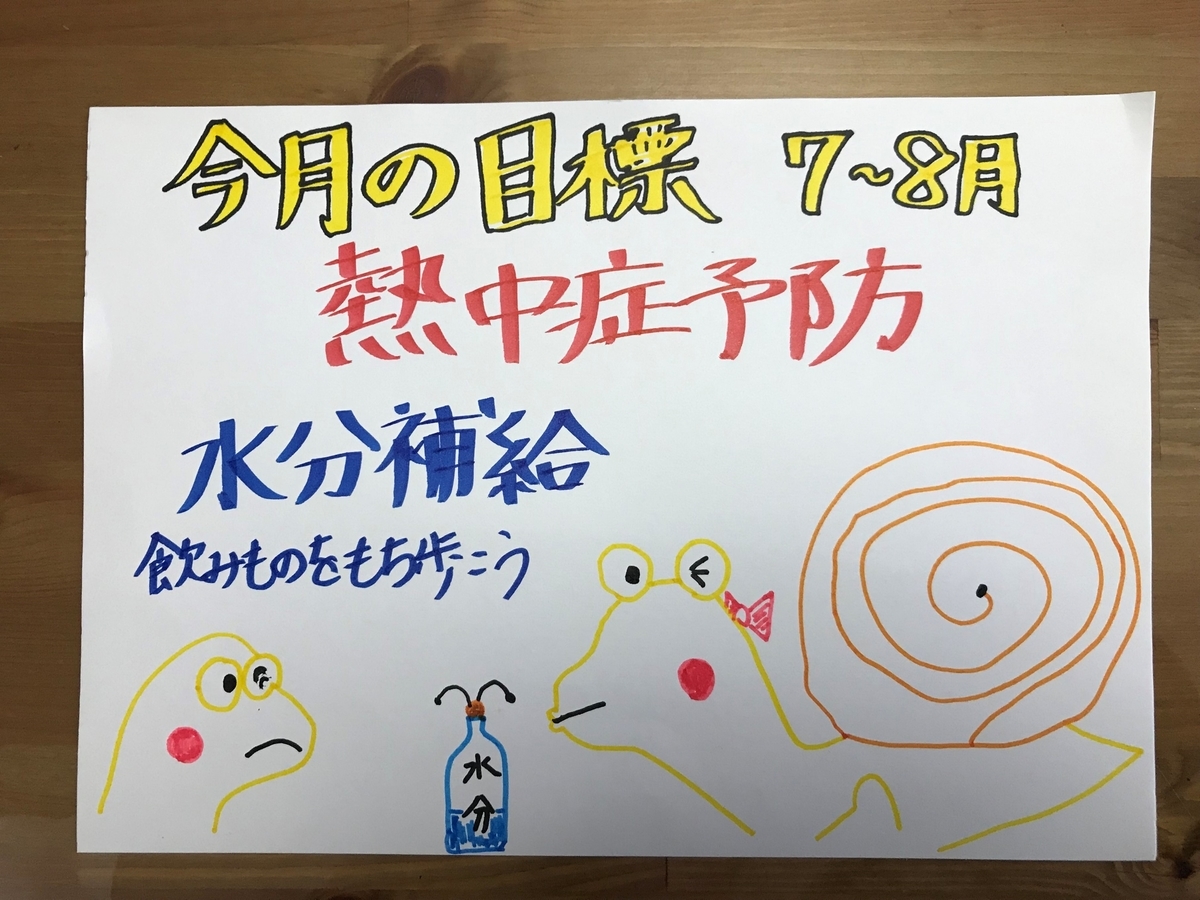 今月の目標 7~8月
熱中症予防
水分補給
飲みものをもち歩こう
水分